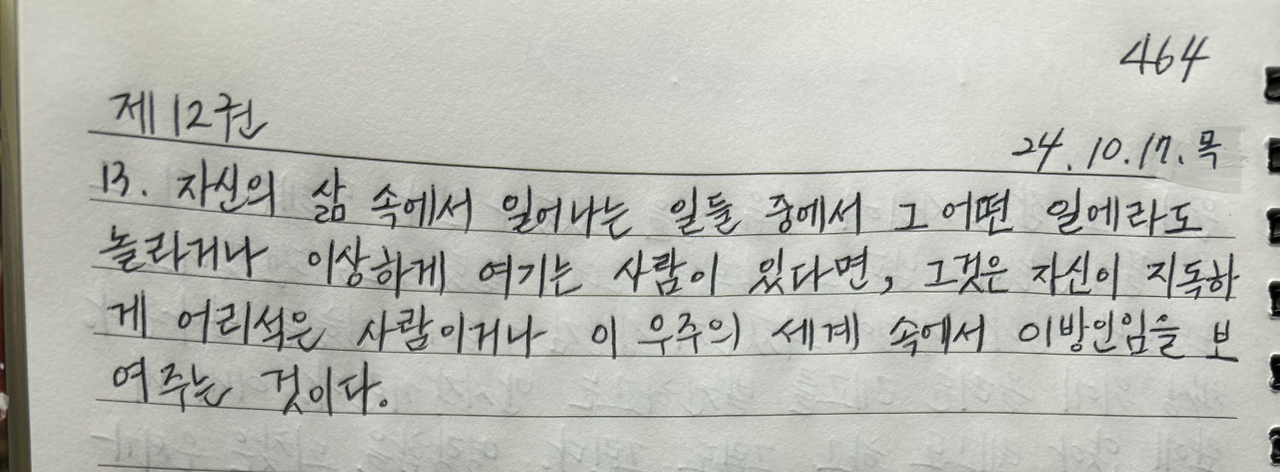 464
제12권
24.10.17.목
13. 자신의 삶 속에서 일어나는 일들 중에서 그 어떤 일에라도
놀라거나 이상하게 여기는 사람이 있다면, 그것은 자신이 지독하
게 어리석은 사람이거나 이 우주의 세계 속에서 이방인임을 보
여주는 것이다.